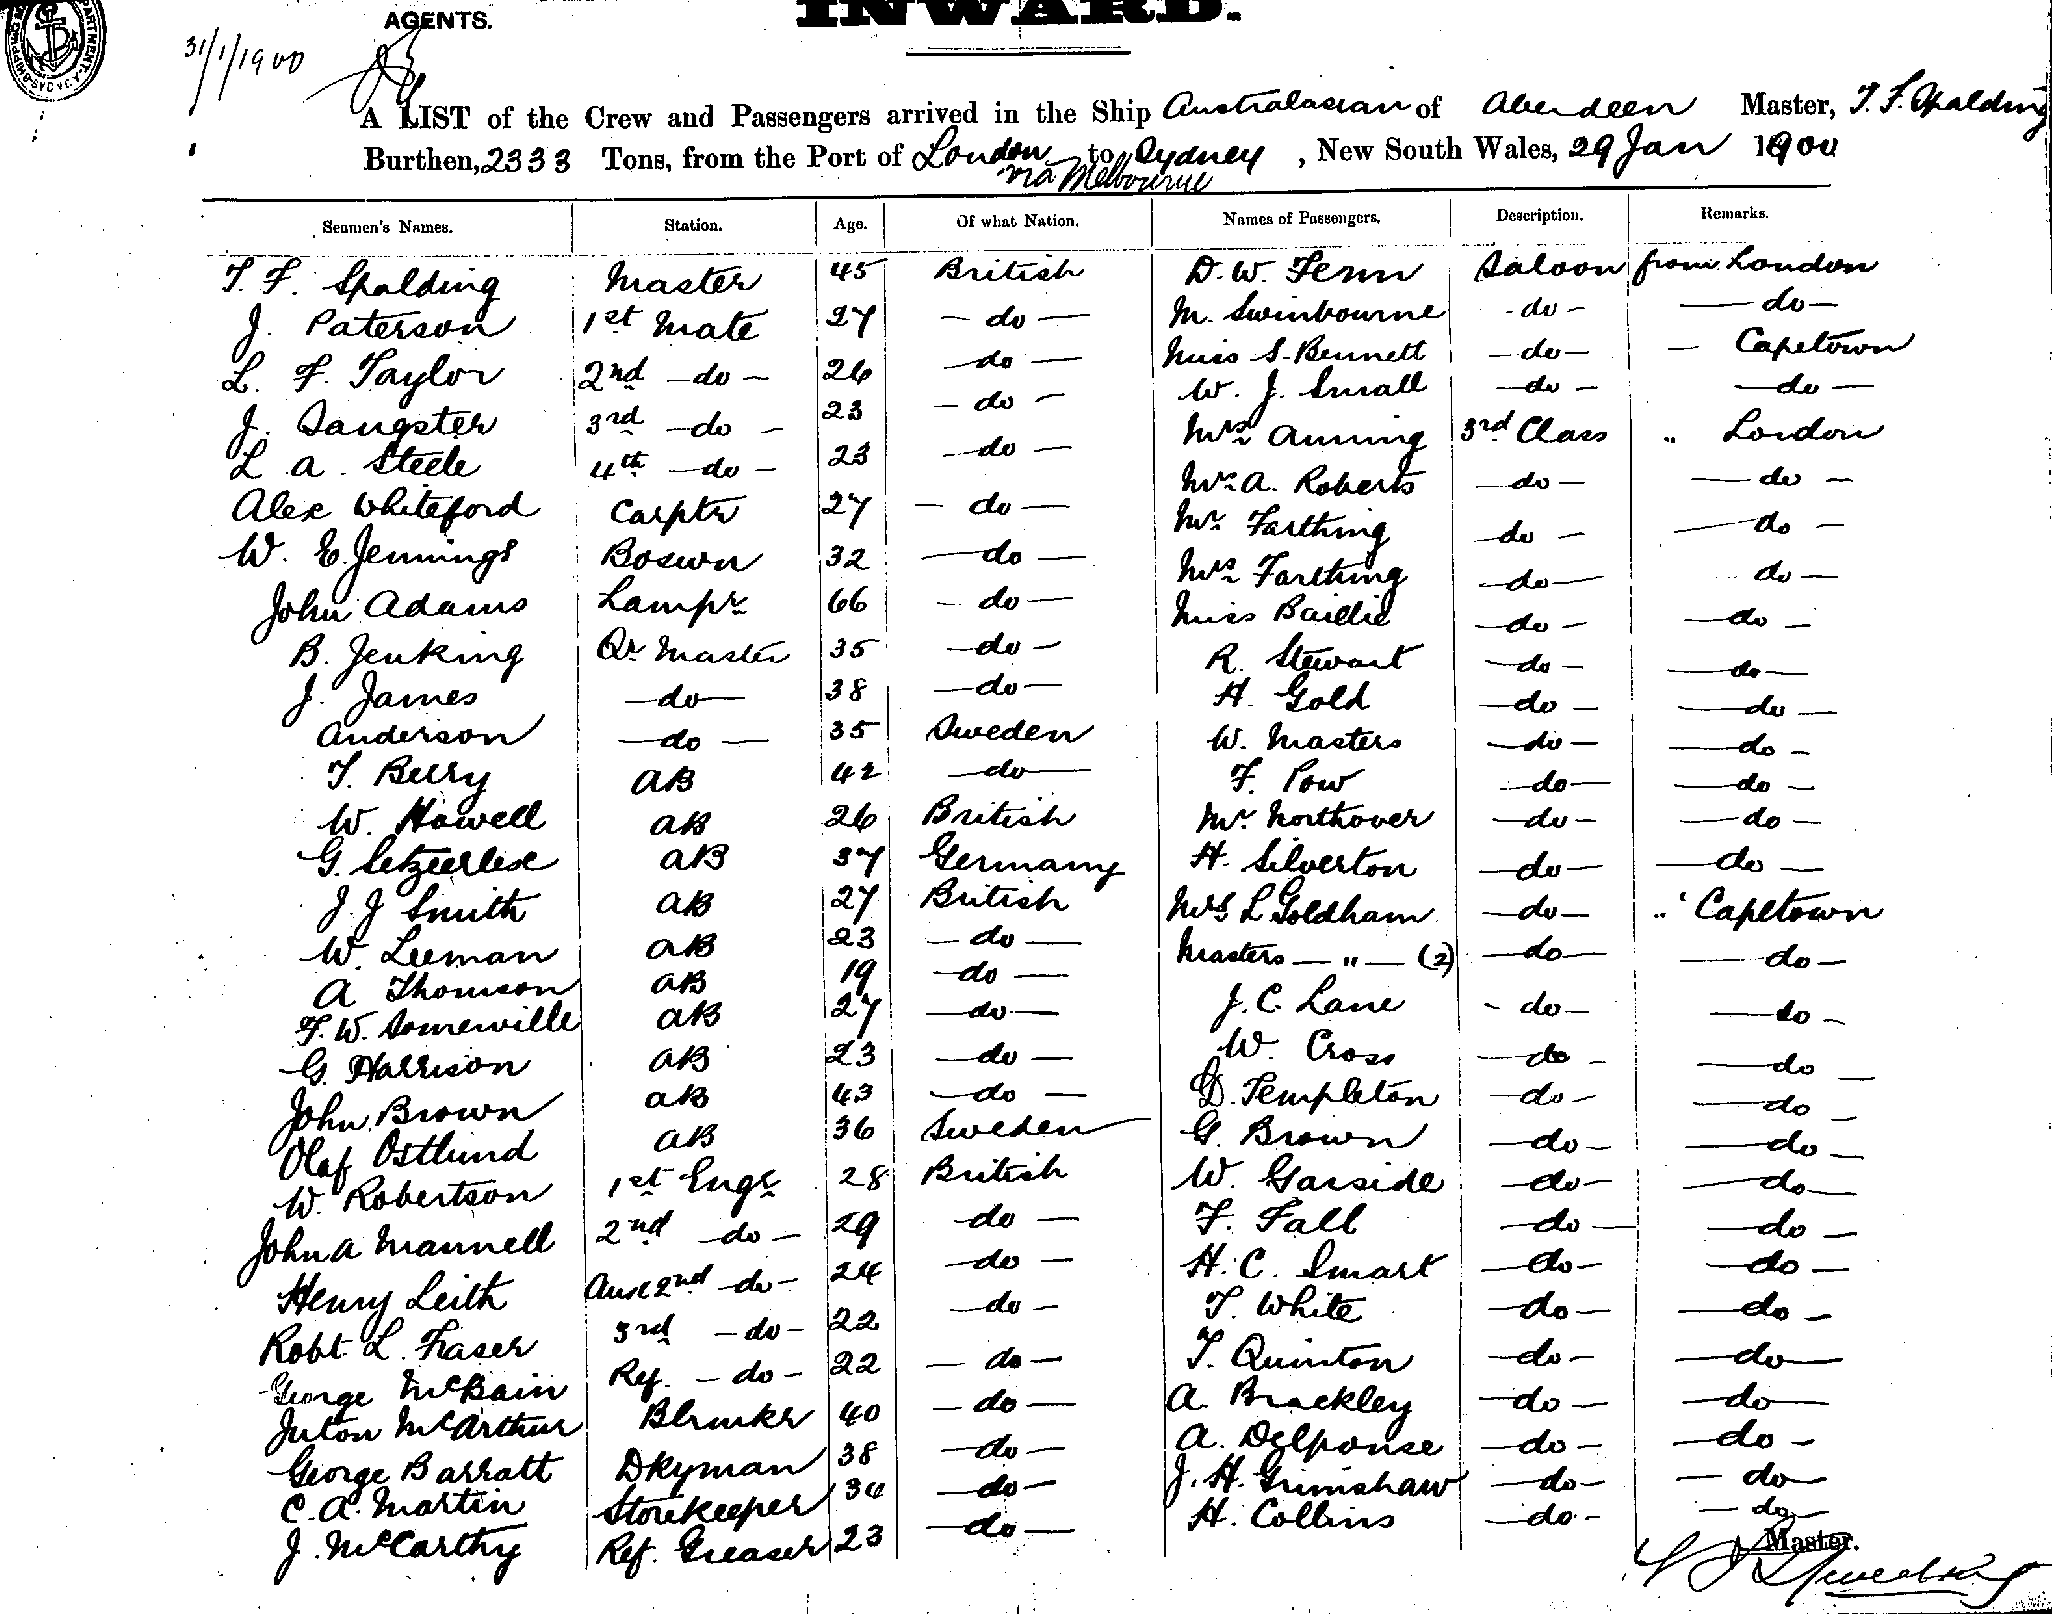 AGENTS.
INWARD.
31/1/1900
A LIST of the Crew and Passengers arrived in the Ship Australasian of Aberdeen Master, T. F. Spalding
Burthen, 2333 Tons, from the Port of London to Sydney, New South Wales, 29 Jan 1900
via Melbourne
Seamen's Names. Station. Age. Of what Nation. Names of Passengers. Description. Remarks.
T. F. Spalding Master 45 British D. W. Fenn Saloon from London
J. Paterson 1st Mate 27 - do - M. Swinbourne - do - - do -
L. F. Taylor 2nd - do - 26 - do - Miss S. Bennett - do - - Capetown
J. Sangster 3rd - do - 23 - do - W. J. Small - do - - do -
L. A. Steele 4th - do - 23 - do - Mrs Anning 3rd Class " London
Alex Whiteford Carptr 27 - do - Mr A. Roberts - do - - do -
W. E. Jennings Boswn 32 - do - Mr Farthing - do - - do -
John Adams Lampr 66 - do - Mrs Farthing - do - do -
B. Jenking Qr Master 35 - do - Miss Baillie - do - - do -
J. James - do - 38 - do - R. Stewart - do - - do -
Anderson - do - 35 Sweden H. Gold - do - - do -
T. Berry AB 42 - do - W. Masters - do - - do -
W. Howell AB 26 British F. Pow - do - - do -
G. AB 37 Germany Mr. Northover - do - - do -
J. J. Smith AB 27 British H. Silverton - do - - do -
W. Leeman AB 23 - do - Mrs L Goldham - do - " Capetown
A Thomson AB 19 - do - Masters - " - (2) - do - - do -
F. W. Somerville AB 27 - do - J. C. Lane - do - - do -
G. Harrison AB 23 - do - W. Cross - do - - do -
John Brown AB 43 - do - D. Templeton - do - - do -
Olaf Ostlund AB 36 Sweden G. Brown - do - - do -
W. Robertson 1st Engr 28 British W. Garside - do - - do -
John A Mannell 2nd - do - 29 - do - F. Fall - do - - do -
Henry Leith 2nd - do - 24 - do - H. C. Smart - do - - do -
Robt. L. Fraser 3rd - do - 22 - do - T. White - do - - do -
George McBain Ref. - do - 22 - do - T. Quinton - do - - do -
McArthur 40 - do - A. Brackley - do - - do -
George Barratt Dkyman 38 - do - A. Delponse - do - - do -
C. A. Martin Storekeeper - do - J. H. Grimshaw - do - - do -
J. McCarthy Ref. Greaser 23 - do - H. Collins - do - - do -
Master.